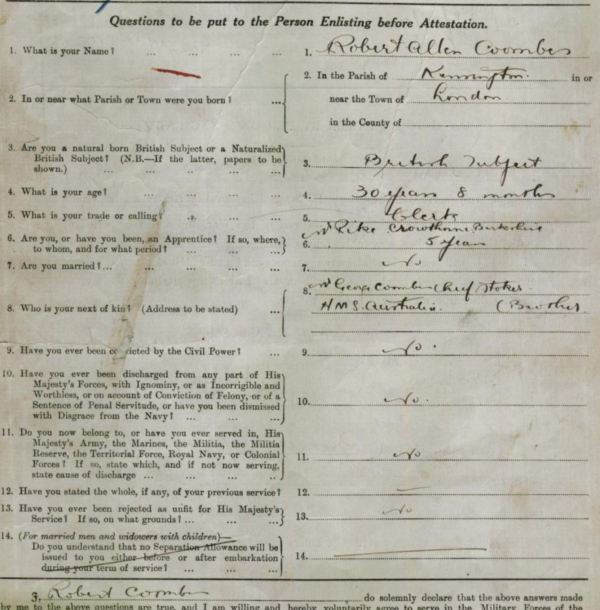 Questions to be put to the Person Enlisting before Attestation.
1. What is your Name? ... ... ... ... 1. Robert Allen Coombes
2. In or near what Parish or Town were you born? ... 2. In the Parish of Kennington in or
near the Town of London
in the County of
3. Are you a natural born British Subject or a Naturalized
British Subject? (N.B.—If the latter, papers to be
shown.) ... ... ... ... ... 3. British Subject
4. What is your age? ... ... ... ... 4. 30 years 8 months
5. What is your trade or calling? ... ... ... 5. Clerk
6. Are you, or have you been, an Apprentice? If so, where,
to whom, and for what period? ... ... ... 6. Mr Pike Crowthorne Berkshire
5 years
7. Are you married?... ... ... ... ... 7. No
8. Who is your next of kin? (Address to be stated) ... 8. Mr George Coombes Chief Stoker
HMS. Australia. (Brother
9. Have you ever been convicted by the Civil Power? ... 9. No.
10. Have you ever been discharged from any part of His
Majesty's Forces, with Ignominy, or as Incorrigible and
Worthless, or on account of Conviction of Felony, or of a
Sentence of Penal Servitude, or have you been dismissed
with Disgrace from the Navy? ... ... ... 10. No.
11. Do you now belong to, or have you ever served in, His
Majesty's Army, the Marines, the Militia, the Militia
Reserve, the Territorial Force, Royal Navy, or Colonial
Forces? If so, state which, and if not now serving,
state cause of discharge ... ... ... ... 11. No
12. Have you stated the whole, if any, of your previous service? 12. —
13. Have you ever been rejected as unfit for His Majesty's
Service? If so, on what grounds? ... ... ... 13. No
14. (For married men and widowers with children)—
Do you understand that no Separation Allowance will be
issued to you either before or after embarkation
during your term of service? ... ... ... 14.
3, Robert Coombes do solemnly declare that the above answers made
by me to the above questions are true, and I am willing and hereby voluntarily agree to serve in the Military Forces of the